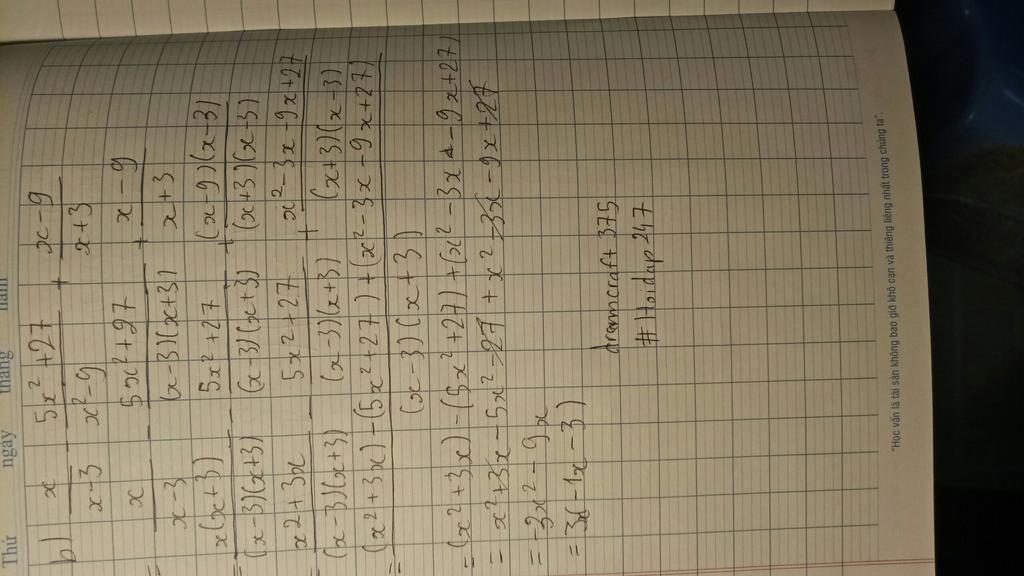 Thứ ngày tháng năm
b) x/(x-3) - (5x²+27)/(x²-9) + (x-9)/(x+3)
= x/(x-3) - (5x²+27)/((x-3)(x+3)) + (x-9)/(x+3)
= x(x+3)/((x-3)(x+3)) - (5x²+27)/((x-3)(x+3)) + (x-9)(x-3)/((x+3)(x-3))
= (x2+3x)/((x-3)(x+3)) - (5x²+27)/((x-3)(x+3)) + (x²-3x-9x+27)/((x+3)(x-3))
= ((x²+3x)-(5x²+27)+(x²-3x-9x+27))/((x-3)(x+3))
= (x²+3x)-(5x²+27)+(x²-3x-9x+27)
= x²+3x-5x²-27+x²-3x-9x+27
= -3x²-9x
= 3x(-1x-3)
dreamcraft 375
#Hoidap247
"Học vấn là tài sản không bao giờ khô cạn và thiêng liêng nhất trong chúng ta"